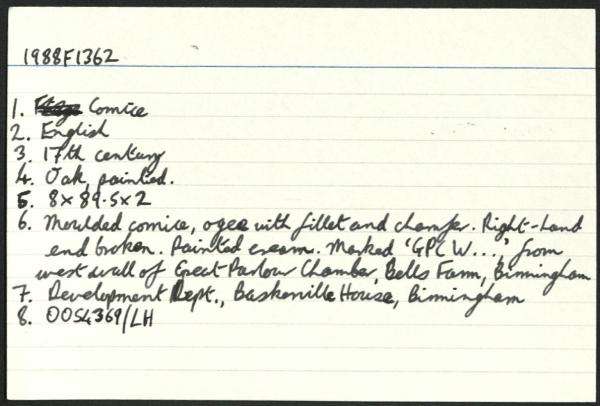 1988F1362
1. Cornice
2. English
3. 17th century
4. Oak, painted.
5. 8 x 89.5 x 2
6. Moulded cornice, ogee with fillet and chamfer. Right-hand
end broken. Painted cream. Marked 'GPC W...', from
west wall of Great Parlour Chamber, Bells Farm, Birmingham
7. Development Dept., Baskerville House, Birmingham
8. OOS4369/LH